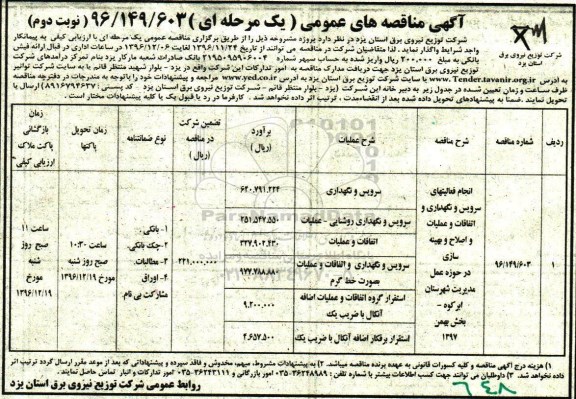 آگهی مناقصه های عمومی ( یک مرحله ای ) ۹۶/۱۴۹/۶۰۳ ( نوبت دوم)
شرکت توزیع نیروی برق
استان یزد
شرکت توزیع نیروی برق استان یزد در نظر دارد پروژه مشروحه ذیل را از طریق برگزاری مناقصه عمومی یک مرحله ای با ارزیابی کیفی به پیمانکار
واجد شرایط واگذار نماید . لذا متقاضیان شرکت در مناقصه می توانند از تاریخ ۱۳۹۶/۱۱/۲۴ لغایت ۱۳۹۶/۱۲/۰۶ در ساعات اداری در قبال ارائه فیش
بانکی به مبلغ ۳۰۰.۰۰۰ ریال واریز شده به حساب سپهر شماره ۲۱۹۵۰۹۵۹۰۶۰۰۴ بانک صادرات شعبه مارکار یزد بنام تمرکز درآمدهای شرکت
توزیع نیروی برق استان یزد جهت دریافت مدارک مناقصه به امور تدارکات این شرکت واقع در یزد - بلوار شهید منتظر قائم یا به سایت شرکت توانیر
به آدرس www.Tender.tavanir.org.ir یا سایت شرکت توزیع برق استان یزد به آدرس www.yed.co.ir مراجعه و پیشنهادات خود را باتوجه به مندرجات در دفترچه مناقصه
ظرف ساعت و زمان تعیین شده در جدول زیر به دبیر خانه این شرکت (یزد - بلوار منتظر قائم - شرکت توزیع نیروی برق استان یزد کد پستی : ۸۹۱۶۷۹۴۶۳۷) ارسال یا
تحویل نمایند .ضمنا به پیشنهادهای تحویل داده شده بعد از انقضاءمدت ، ترتیب اثر داده نخواهد شد . کارفرما در رد یا قبول یک یا کلیه پیشنهادات مختار است .
ردیف
شماره مناقصه
شرح مناقصه
شرح عملیات
برآورد
(ریال)
تضمین شرکت
در مناقصه
(ریال)
نوع ضمانتنامه
زمان تحویل
پاکتها
زمان
بازگشائی
پاکت ملاک
ارزیابی کیفی
۱
۹۶/۱۴۹/۶۰۳
انجام فعالیتهای
سرویس و نگهداری و
اتفاقات و عملیات
و اصلاح و بهینه
سازی
در حوزه عمل
مدیریت شهرستان
ابرکوه -
بخش بهمن
۱۳۹۷
سرویس و نگهداری
سرویس و نگهداری روشنایی - عملیات
۲۵۱.۵۴۷.۵۵۰
اتفاقات و عملیات
۳۳۷.۹۰۲.۴۳۰
سرویس و نگهداری و اتفاقات و عملیات
بصورت خط گرم
۹۷۷.۷۸۸.۸۸۰
استقرار گروه اتفاقات و عملیات اضافه
آنکال با ضریب یک
۹.۲۰۰.۰۰۰
استقرار برقکار اضافه آنکال با ضریب یک
۴.۶۵۷.۵۰۰
۲۲۱.۰۰۰.۰۰۰
۱- بانکی .
۲-چک بانکی.
۳- مطالبات.
۴- اوراق
مشارکت بی نام.
ساعت ۱۰:۳۰
صبح روز شنبه
مورخ ۱۳۹۶/۱۲/۱۹
ساعت ۱۱
صبح روز
شنبه
مورخ
۱۳۹۶/۱۲/۱۹
۱) هزینه درج آگهی مناقصه و کلیه کسورات قانونی به عهده برنده مناقصه میباشد. ۲) به پیشنهادات مشروط، مبهم، مخدوش و فاقد سپرده و پیشنهاداتی که بعد از موعد مقرر ارسال گردد ترتیب اثر
داده نخواهد شد. ۳) داوطلبان می توانند جهت کسب اطلاعات بیشتر با شماره تلفن : ۰۳۵-۳۶۲۴۸۹۸۹ امور بازرگانی و ۰۳۵-۳۶۲۴۲۱۱۱ امور تدارکات و انبار تماس حاصل نمایند.
روابط عمومی شرکت توزیع نیروی برق استان یزد